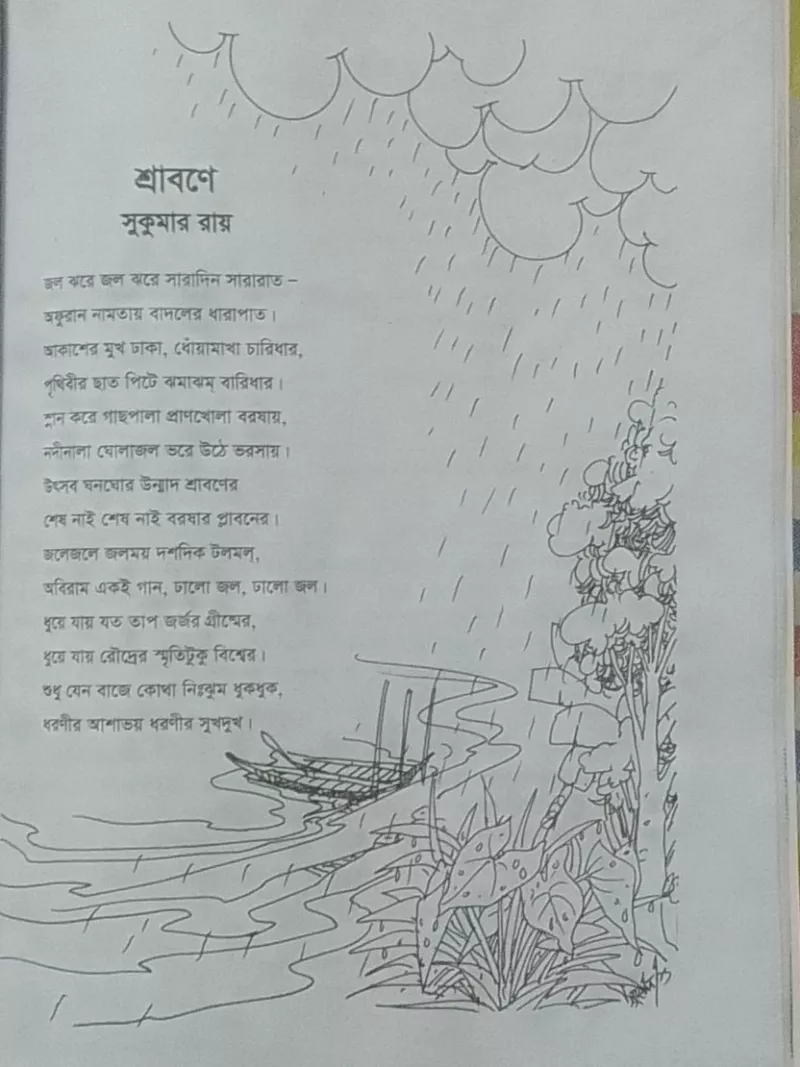 শ্রাবণে
সুকুমার রায়
জল ঝরে জল ঝরে সারাদিন সারারাত –
অফুরান নামতায় বাদলের ধারাপাত।
আকাশের মুখ ঢাকা, ধোঁয়ামাখা চারিধার,
পৃথিবীর ছাত পিটে ঝমাঝম্ বারিধার।
স্নান করে গাছপালা প্রাণখোলা বরষায়,
নদীনালা ঘোলাজল ভরে উঠে ভরসায়।
উৎসব ঘনঘোর উন্মাদ শ্রাবণের
শেষ নাই শেষ নাই বরষার প্লাবনের।
জলেজলে জলময় দশদিক টলমল্,
অবিরাম একই গান, ঢালো জল, ঢালো জল।
ধুয়ে যায় যত তাপ জর্জর গ্রীষ্মের,
ধুয়ে যায় রৌদ্রের স্মৃতিটুকু বিশ্বের।
শুধু যেন বাজে কোথা নিঃঝুম ধুকধুক,
ধরণীর আশাভয় ধরণীর সুখদুখ।